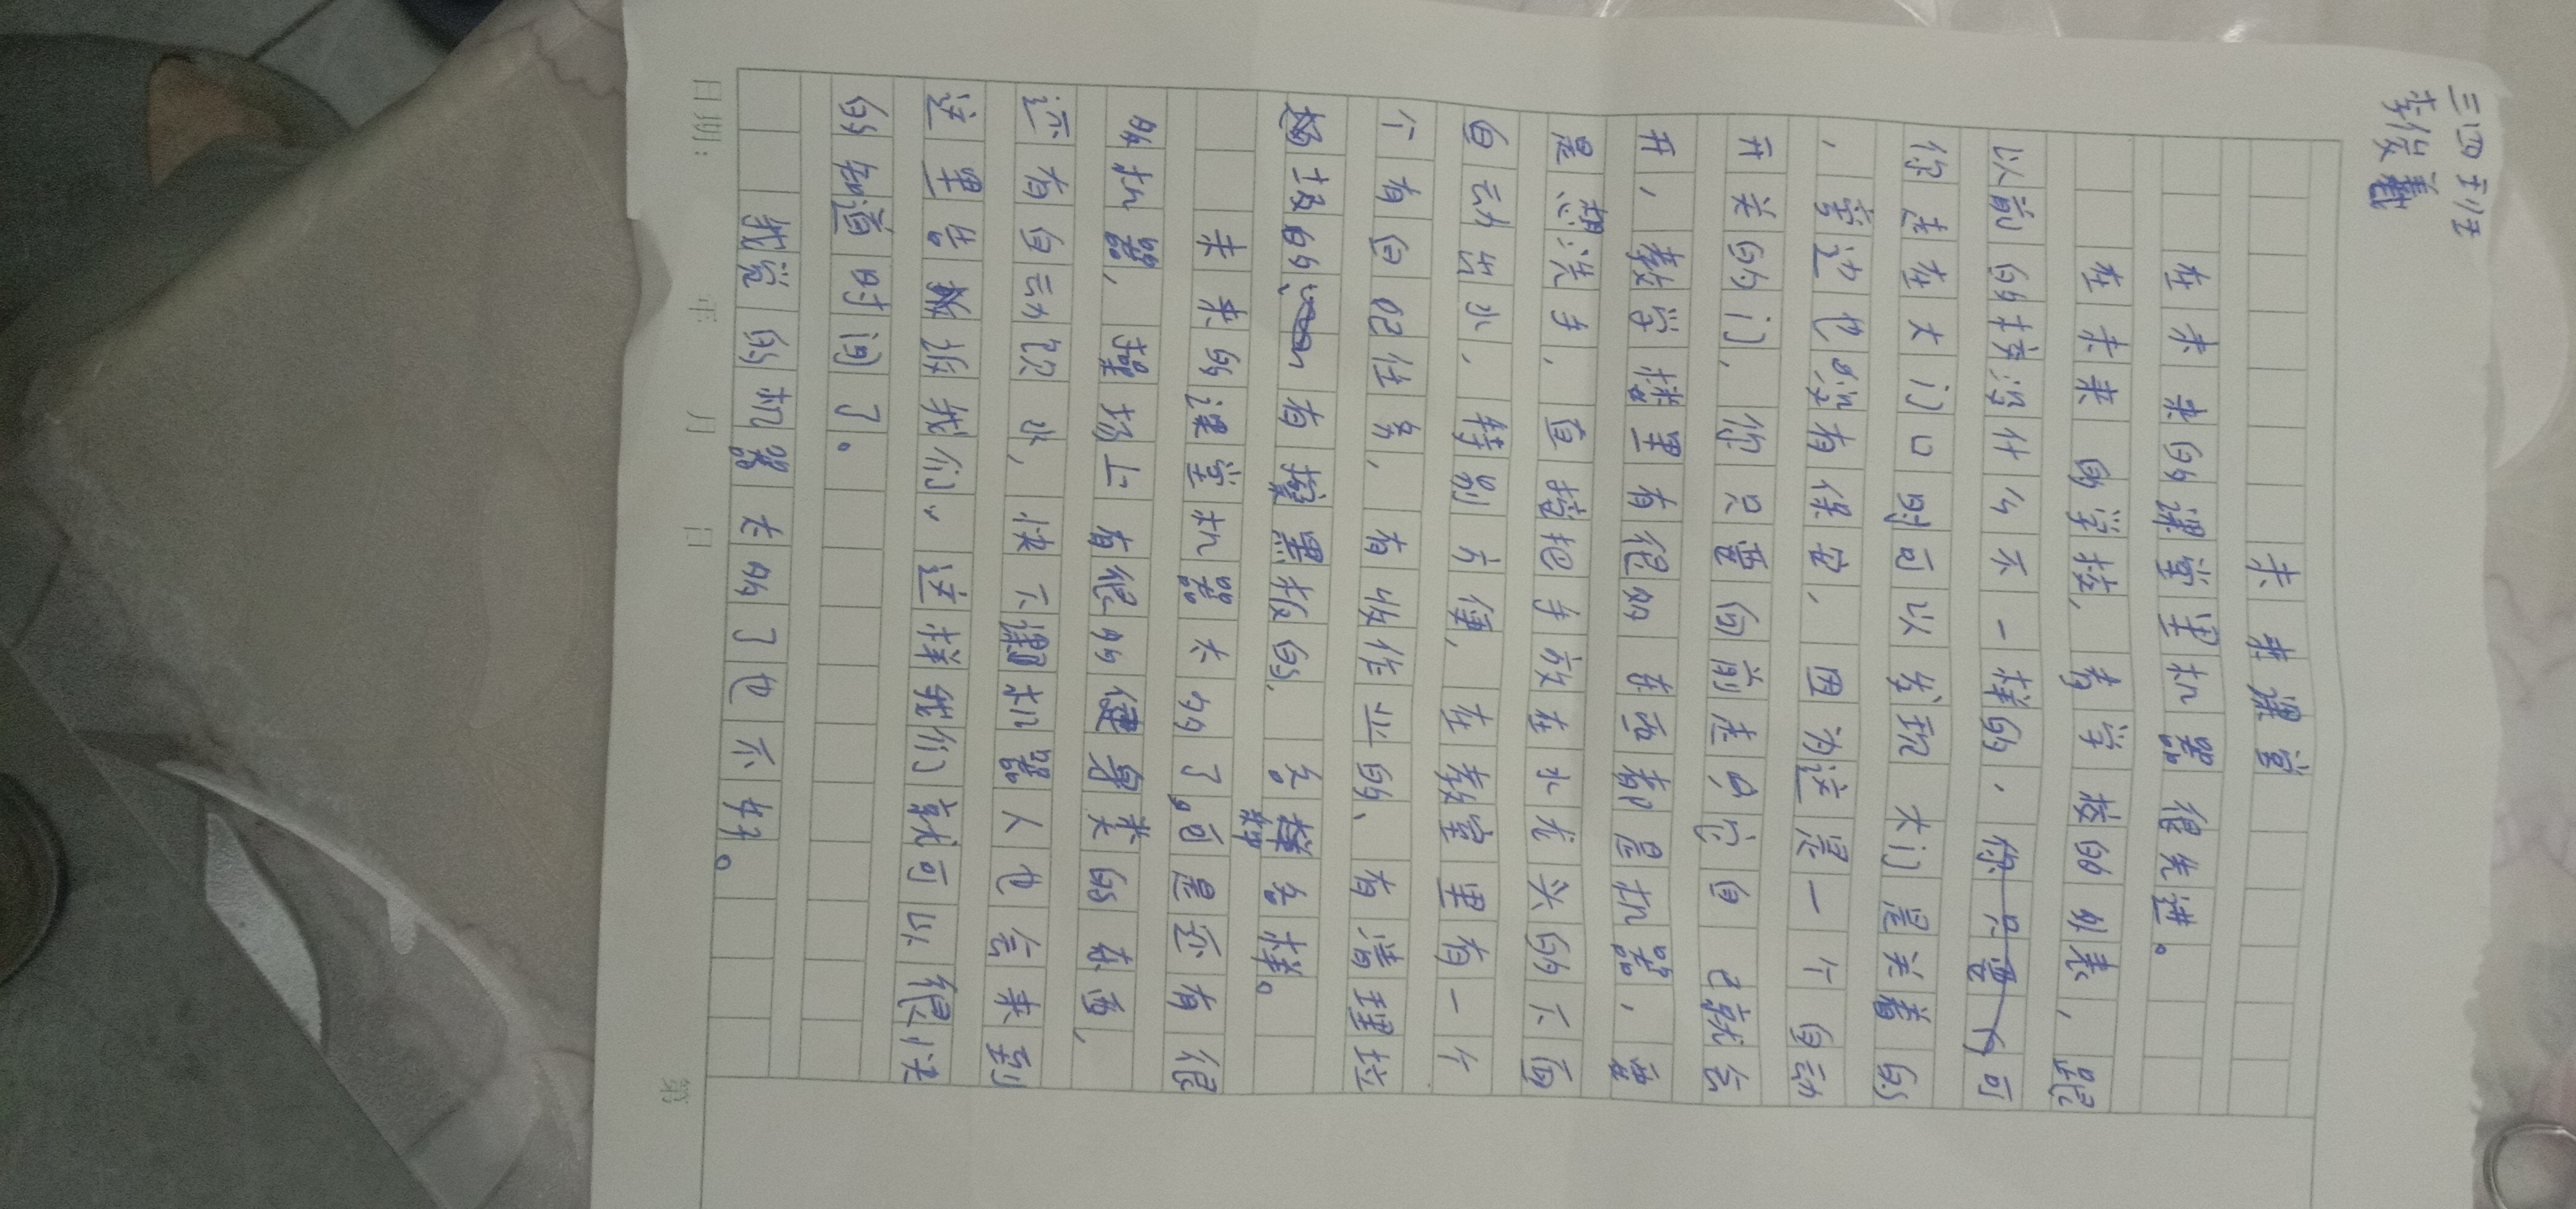 三四班
李俊
未来课堂
在未来的课堂里机器很先进。
在未来的学校,看学校的外表,跟
以前的学校没什么不一样的,你只要从可
你走在大门口时可以发现大门是关着的
,旁边也没有保安,因为这是一个自动
开关的门,你只要向前走,它自己就会
开,教学楼里有很多东西都是机器,要
是想洗手,直接把手放在水龙头的下面
自动出水,特别方便,在教室里有一个
个有自己任务,有收作业的、有清理垃
圾的有擦黑板的,各种各样。
未来的课堂机器太多了。可是还有很
多机器,操场上有很多健身类的东西,
还有自动饮水,快下课机器人也会来到
这里告诉我们,这样我们就可以很快
的知道时间了。
我觉的机器太多了也不好。
日期: 年 月 日
第